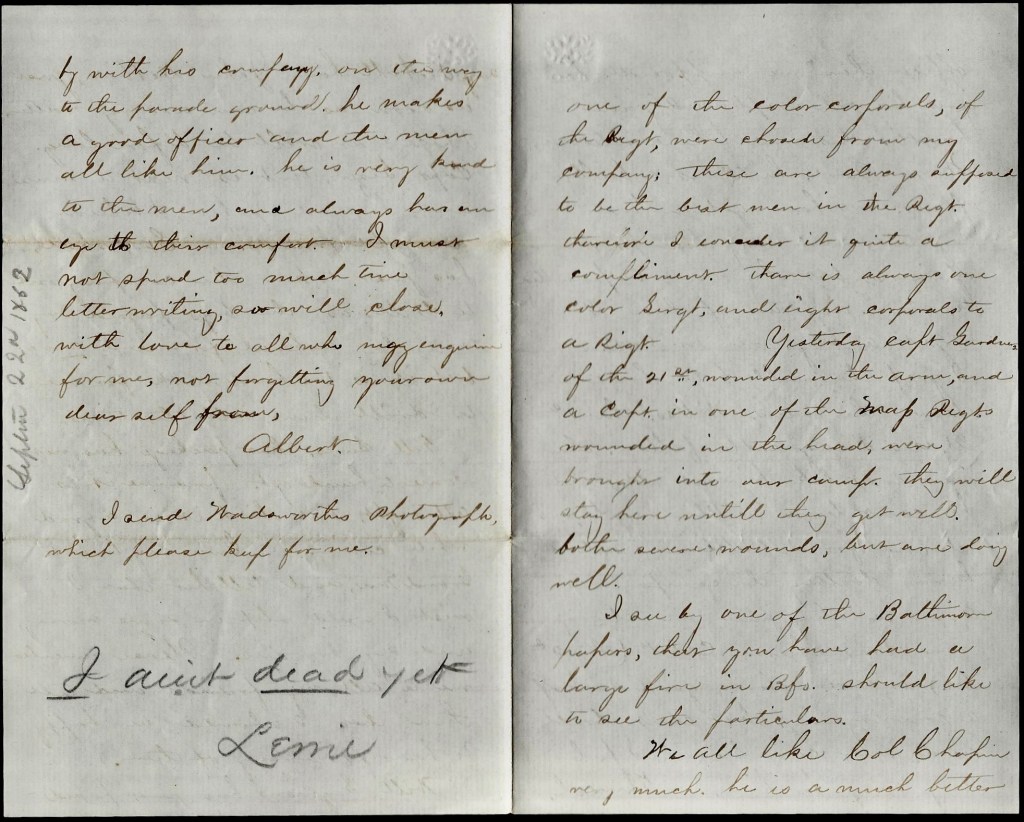 by with his company. on the way
to the parade ground. he makes
a good officer and the men
all like him. he is very kind
to the men, and always has an
eye to their comfort. I must
not spend too much time
letter writing, so will close,
with love to all who may enquire
for me, not forgetting your own
dear self from,
Albert.
I send Wadsworths Photograph,
which please keep for me.
I aint dead yet
Lennie
Septem 22n 1862
one of the color corporals, of
the Regt, were chosen from my
company; these are always supposed
to be the best men in the Regt.
therefore I consider it quite a
compliment. thare is always one
color Sergt, and eight corporals to
a Regt. Yesterday capt Gardner
of the 21st, wounded in the arm, and
a Capt. in one of the Mass Regts
wounded in the head, were
brought into our camp. they will
stay here untill they get well.
bothe severe wounds, but are doing
well.
I see by one of the Baltimore
papers, that you have had a
large fire in Bfs. should like
to see the particulars.
We all like Col Chapin
very much. he is a much better